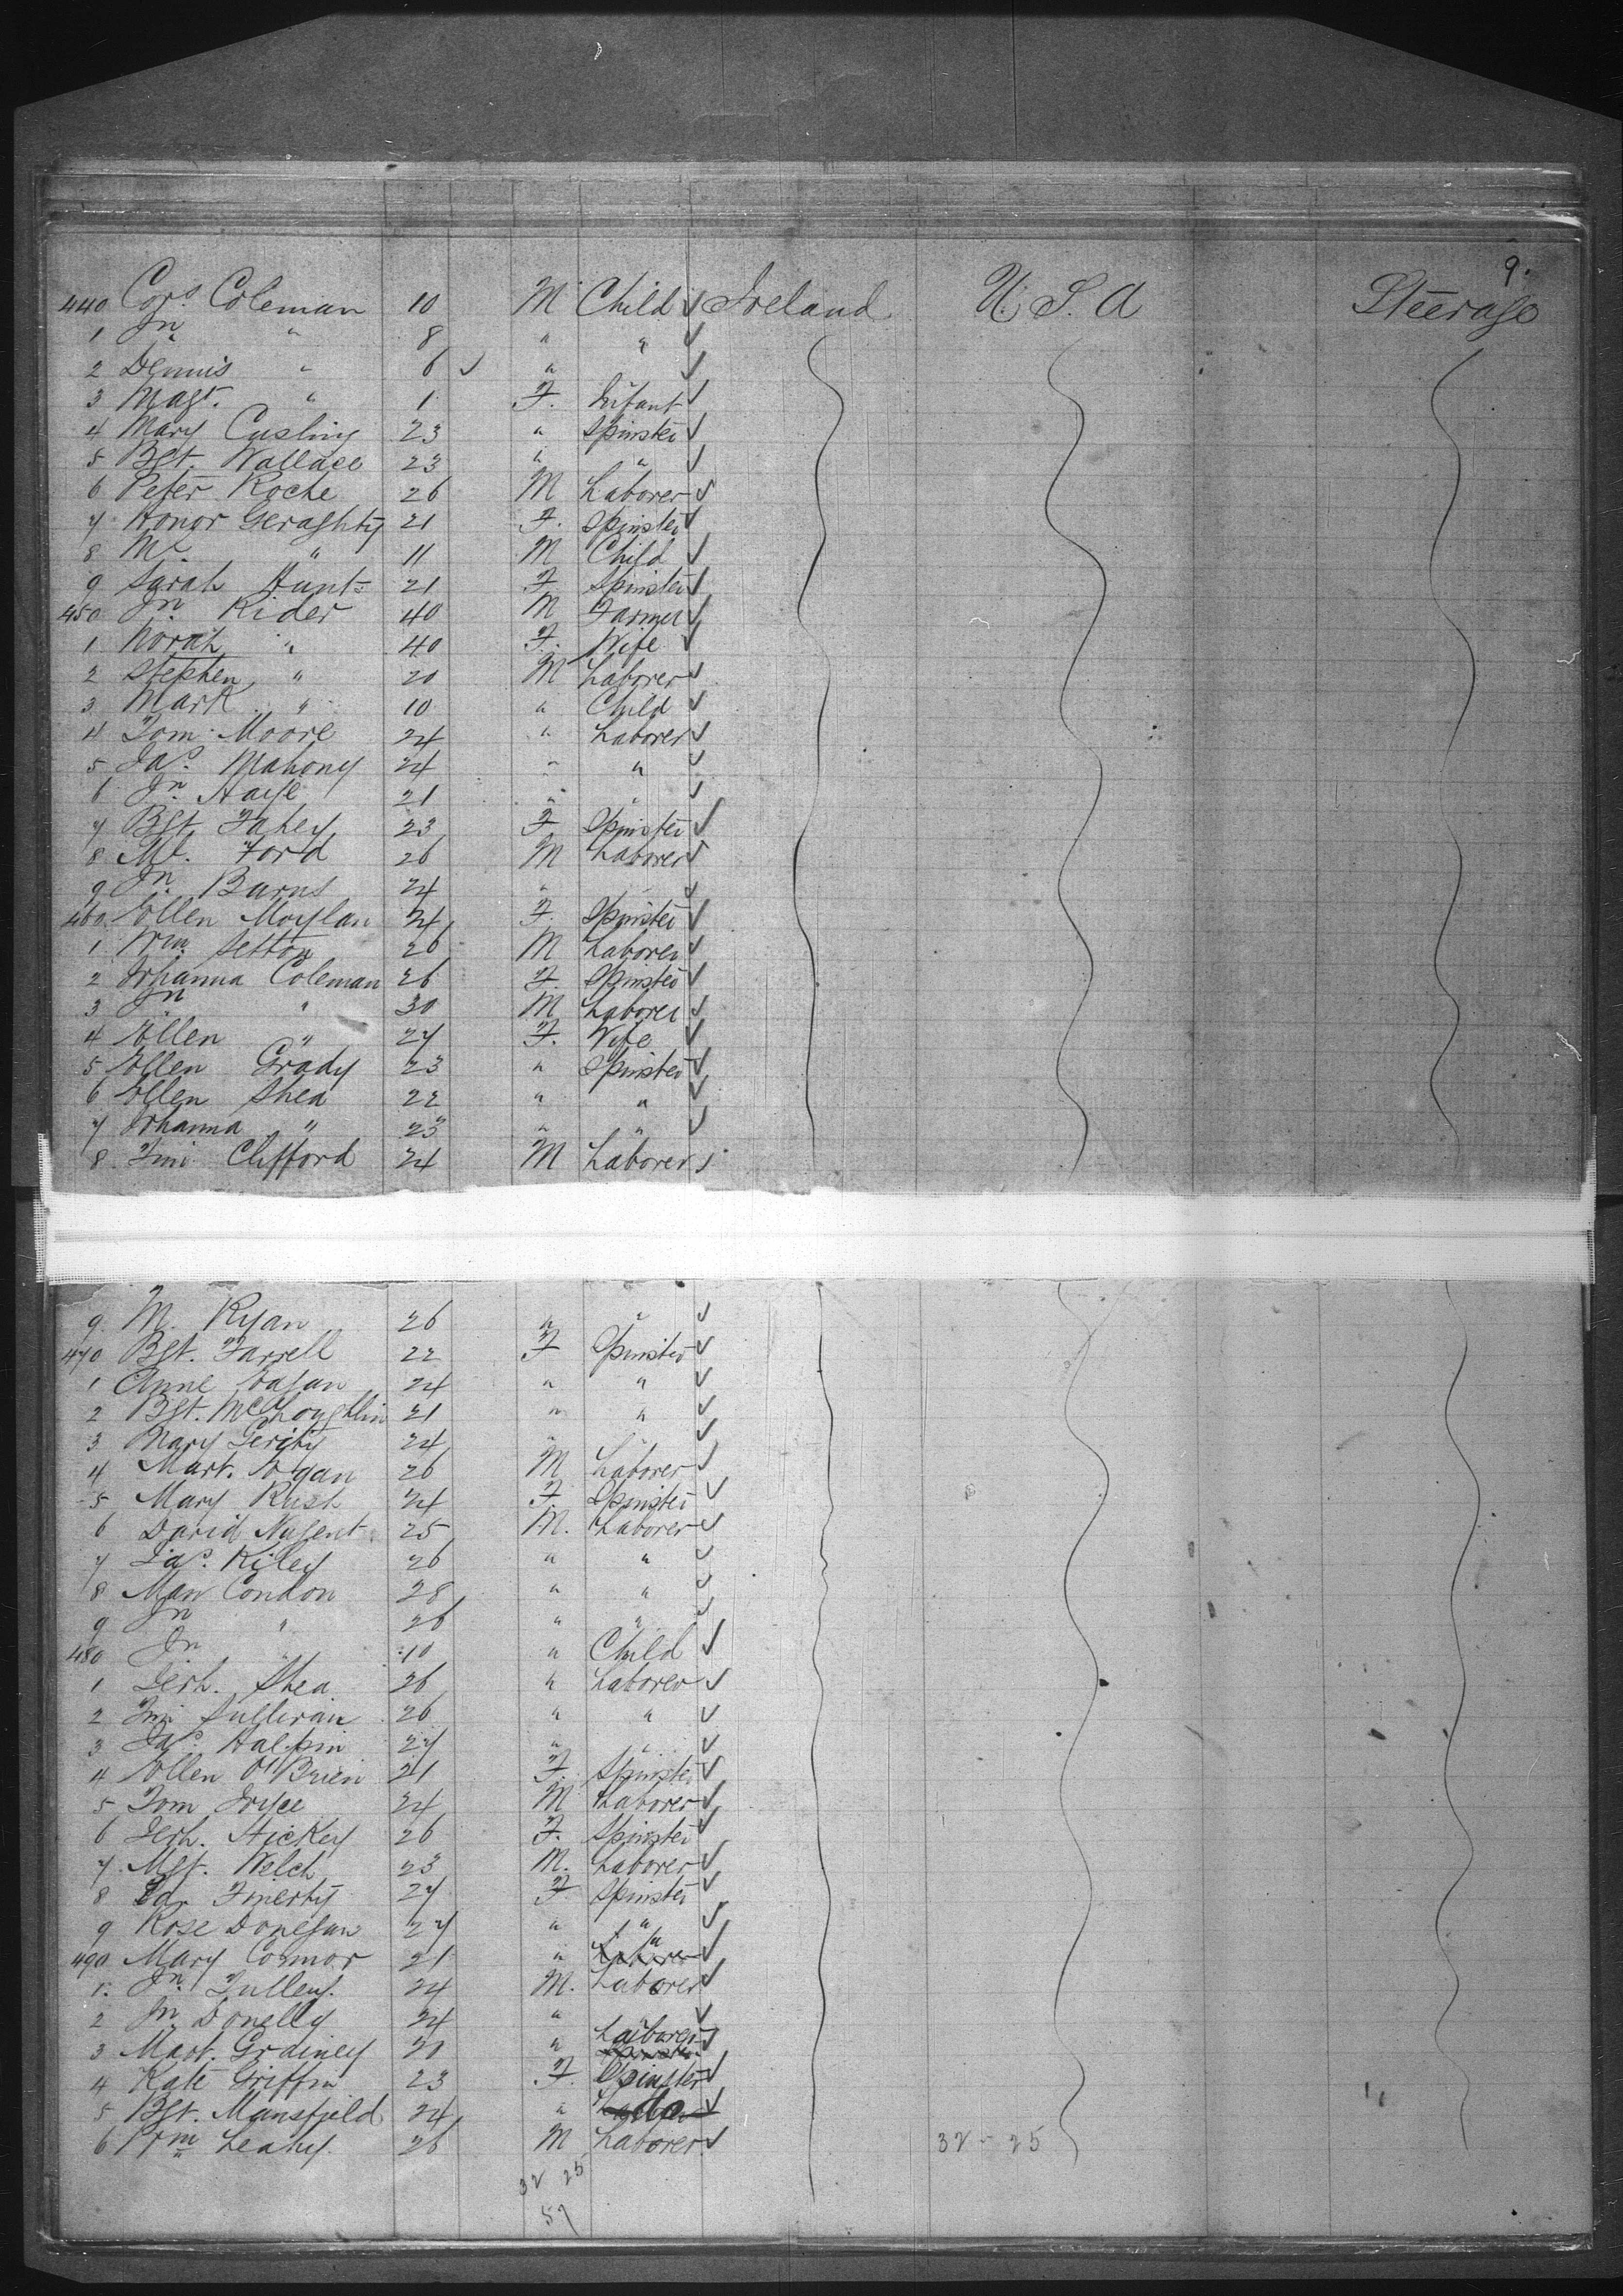 9.
440 Cors. Coleman 10 M Child ✓ Ireland U.S.A Steerage
1 Jn " 8 " " ✓
2 Dennis " 6 ✓ " " ✓
3 Magt. " 1 F. Infant ✓
4 Mary Cushing 23 " Spinster ✓
5 Bgt. Wallace 23 " " ✓
6 Peter Roche 26 M Laborer ✓
7 Honor Geraghty 21 F. Spinster ✓
8 Ml. " 11 M Child ✓
9 Sarah Hunt 21 F Spinster ✓
450 Jn Rider 40 M Farmer ✓
1 Norah " 40 F. Wife ✓
2 Stephen " 20 M Laborer ✓
3 Mark " 10 " Child ✓
4 Tom Moore 24 " Laborer ✓
5 Jas. Mahony 24 " " ✓
6 Jn. Haye 21 " " ✓
7 Bgt. Fahey 23 F Spinster ✓
8 Ml. Ford 26 M Laborer ✓
9 Jn Burns 24 " " ✓
460 Ellen Moylan 24 F. Spinster ✓
1 Wm. 26 M Laborer ✓
2 Johanna Coleman 26 F. Spinster ✓
3 Jn " 30 M Laborer ✓
4 Ellen " 27 F. Wife ✓
5 Ellen Grady 23 " Spinster ✓
6 Ellen Shea 22 " " ✓
7 Johanna " 23 " " ✓
8 Tim Clifford 24 M Laborer ✓
9 M. Ryan 26 " " ✓
470 Bgt. Farrell 22 F Spinster ✓
1 Anne Eagan 24 " " ✓
2 Bgt. McLoughlin 21 " " ✓
3 Mary Gerity 24 " " ✓
4 Mart. Egan 26 M Laborer ✓
5 Mary Rush 24 F. Spinster ✓
6 David Nugent 25 M. Laborer ✓
7 Jas. Kiley 26 " " ✓
8 Maw Condon 28 " " ✓
9 Jn " 26 " " ✓
480 Jn " 10 " Child ✓
1 Jerh. Shea 26 " Laborer ✓
2 Tim Sullivan 26 " " ✓
3 Jas. Halpin 27 " " ✓
4 Ellen O'Brien 21 F. Spinster ✓
5 Tom Joyce 24 M Laborer ✓
6 Jerh. Hickey 26 F. Spinster ✓
7 Mgt. Welch 23 M. Laborer ✓
8 Finerty 27 F. Spinster ✓
9 Rose Donegan 27 " " ✓
490 Mary Connor 21 " " ✓
1. Jn. Tulley. 24 M. Laborer ✓
2 Jn Donelly 24 " ✓
3 Mart. Grainey 20 " Laborer ✓
4 Kate Griffin 23 F. Spinster ✓
5 Bgt. Mansfield 24 " do ✓
6 Wm Leahy. 26 M Laborer ✓
32 - 25
32 25
57